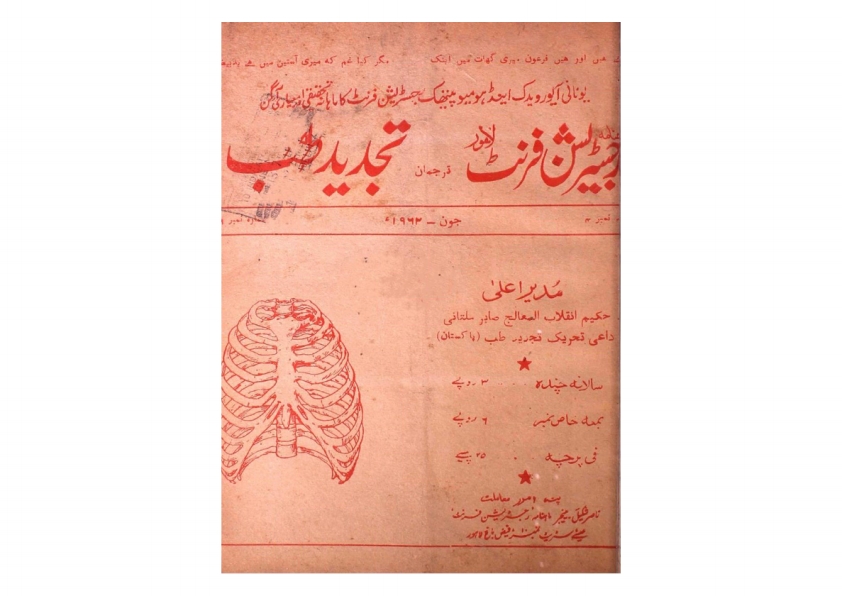 ھیں اور ھیں فرعون میری گھات میں ابتک مگر کیا غم کہ میری آستین میں ہے
یونانی آیورویدک اینڈ ہومیوپیتھک رجسٹریشن فرنٹ کا ماہانہ تحقیقی و معیاری آرگن
رجسٹریشن فرنٹ لاہور ترجمان تجدید طب
نمبر ۴ جون - ۱۹۶۲ء شمارہ نمبر ۶
مُدیر اعلیٰ
حکیم انقلاب المعالج صابر ملتانی
داعی تحریک تجدید طب (پاکستان)
سالانہ چندہ ۳ روپے
بمعہ خاص نمبر ۶ روپے
فی پرچہ ۲۵ پیسے
پتہ و امور معاملات
ناصر شکیل منیجر ماہنامہ رجسٹریشن فرنٹ
سٹریٹ نمبر فیض باغ لاہور